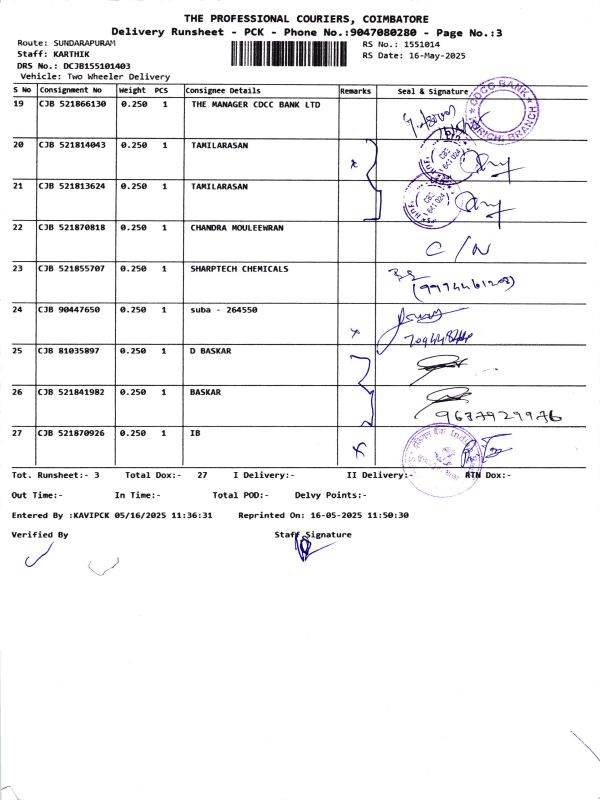 THE PROFESSIONAL COURIERS, COIMBATORE
Delivery Runsheet - PCK - Phone No.:9047080280 - Page No.:3
Route: SUNDARAPURAM RS No.: 1551014
Staff: KARTHIK RS Date: 16-May-2025
DRS No.: DCJB155101403
Vehicle: Two Wheeler Delivery
S No Consignment No Weight PCS Consignee Details Remarks Seal & Signature
19 CJB 521866130 0.250 1 THE MANAGER CDCC BANK LTD
CDCC BANK BRANCH
20 CJB 521814043 0.250 1 TAMILARASAN
21 CJB 521813624 0.250 1 TAMILARASAN
22 CJB 521870818 0.250 1 CHANDRA MOULEEWRAN C/N
23 CJB 521855707 0.250 1 SHARPTECH CHEMICALS
24 CJB 90447650 0.250 1 suba - 264550 x
25 CJB 81035897 0.250 1 D BASKAR
26 CJB 521841982 0.250 1 BASKAR
27 CJB 521870926 0.250 1 IB x
Tot. Runsheet:- 3 Total Dox:- 27 I Delivery:- II Delivery:- RTN Dox:-
Out Time:- In Time:- Total POD:- Delvy Points:-
Entered By :KAVIPCK 05/16/2025 11:36:31 Reprinted On: 16-05-2025 11:50:30
Verified By Staff Signature